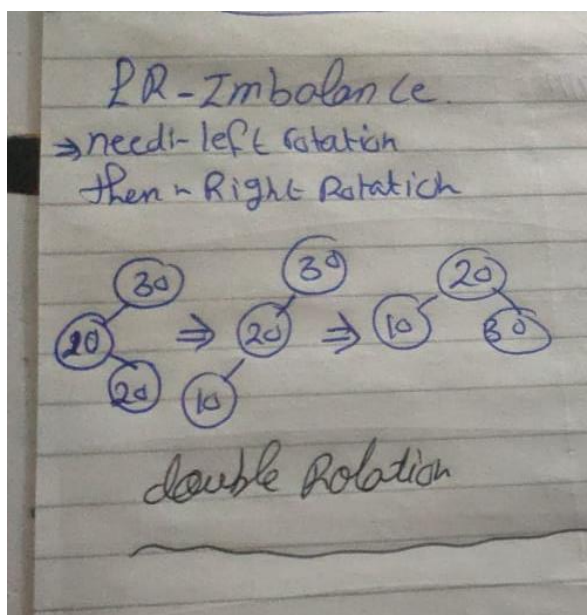 LR-Imbalance.
⇒ need:- left rotation
then :- Right Rotation
30 30 20
20 ⇒ 20 ⇒ 10 30
20 10
double Rotation